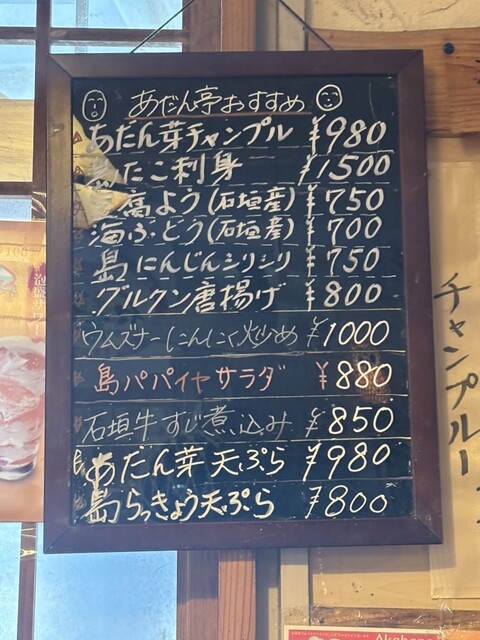 あだん亭おすすめ
あだん芽チャンプル ¥980
島たこ刺身 ¥1500
高よう(石垣産) ¥750
海ぶどう(石垣産) ¥700
島にんじんシリシリ ¥750
グルクン唐揚げ ¥800
ウムズナーにんにく炒め ¥1000
島パパイヤサラダ ¥880
石垣牛すじ煮込み ¥850
あだん芽天ぷら ¥980
島らっきょう天ぷら ¥800
チャンプルー